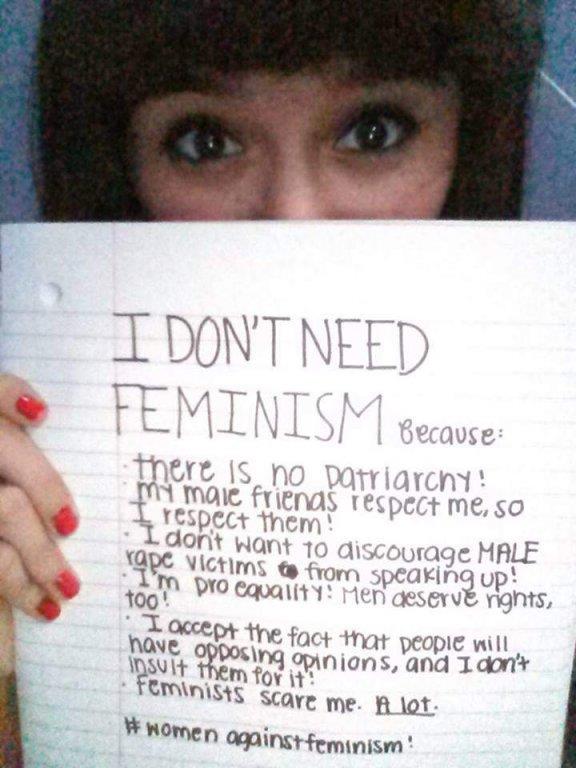 I DON'T NEED
FEMINISM Because:
· there is no patriarchy!
· my male friends respect me, so
I respect them!
· I don't want to discourage MALE
rape victims from speaking up!
· I'm pro equality! Men deserve rights,
too!
· I accept the fact that people will
have opposing opinions, and I don't
insult them for it!
· Feminists scare me. A lot.
# women against feminism!